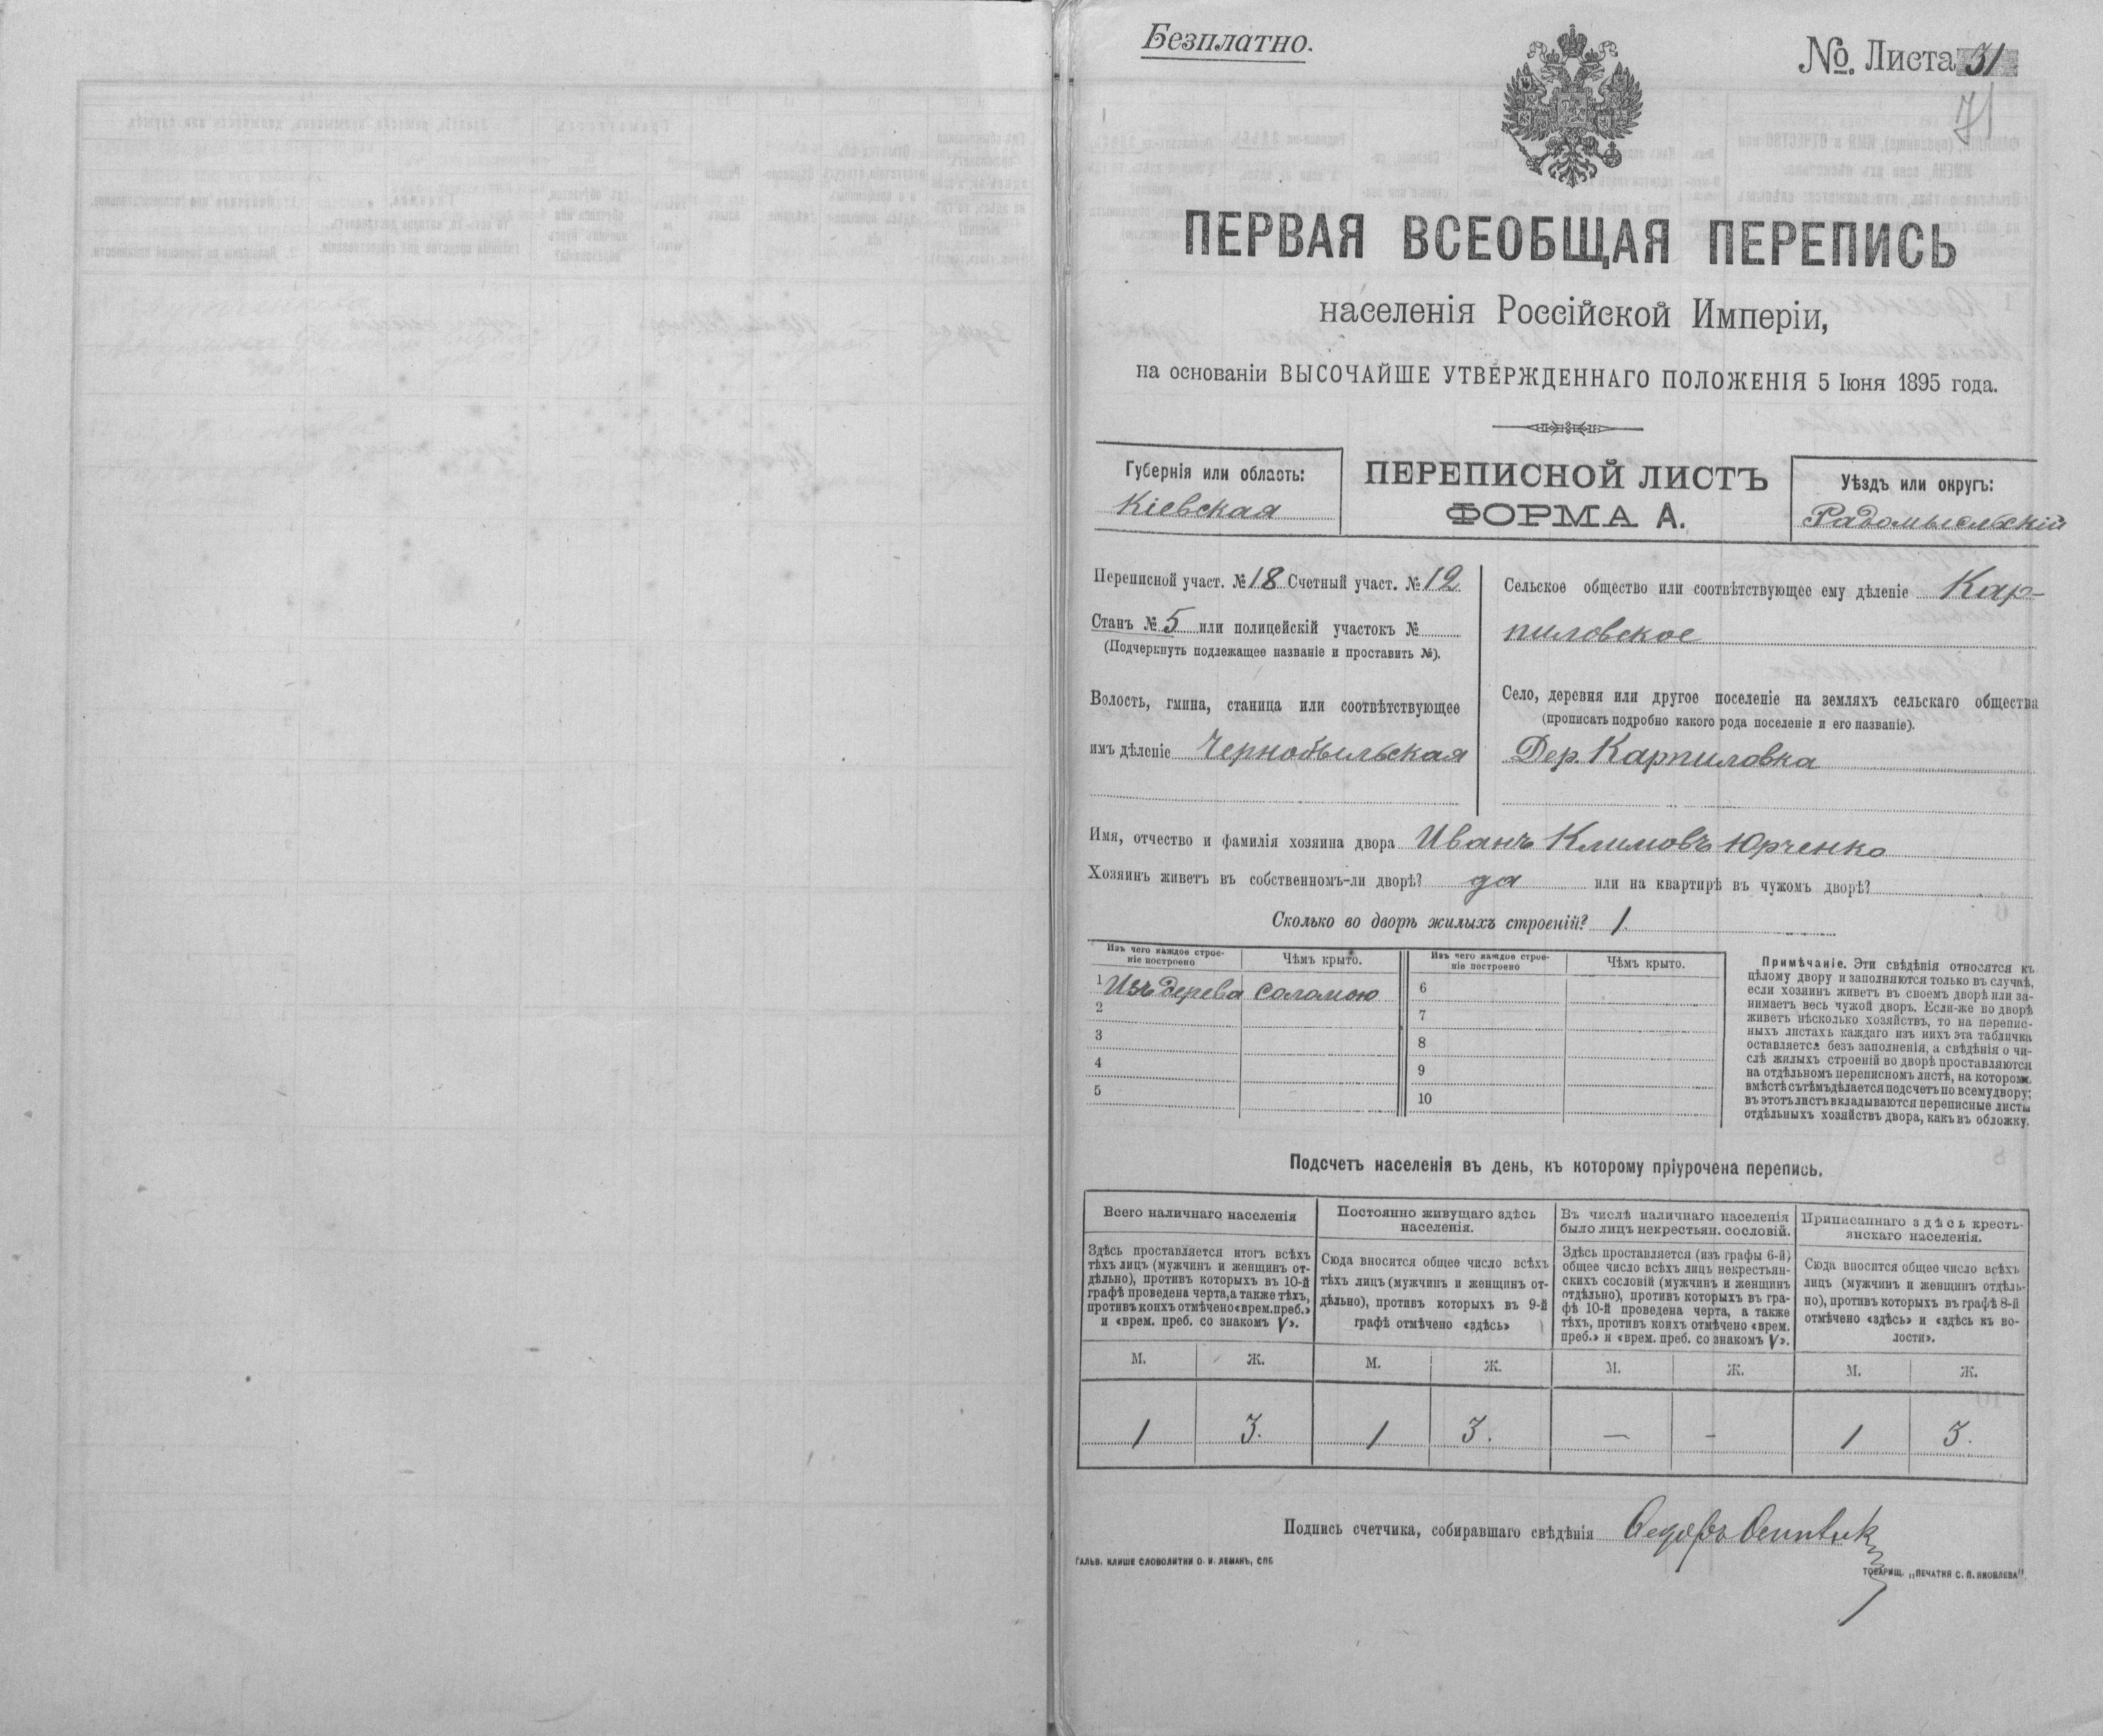 Безплатно.
№. Листа 31
71
ПЕРВАЯ ВСЕОБЩАЯ ПЕРЕПИСЬ
населенія Россійской Имперіи,
на основаніи ВЫСОЧАЙШЕ УТВЕРЖДЕННАГО ПОЛОЖЕНІЯ 5 Іюня 1895 года.
Губернія или область:
Кіевская
ПЕРЕПИСНОЙ ЛИСТЪ
ФОРМА А.
Уѣздъ или округъ:
Радомысльскій
Переписной участ. № 18 Счетный участ. № 12
Станъ № 5 или полицейскій участокъ №
(Подчеркнуть подлежащее названіе и проставить №).
Волость, гмина, станица или соотвѣтствующее
имъ дѣленіе Чернобыльская
Сельское общество или соотвѣтствующее ему дѣленіе Кар-
пиловское
Село, деревня или другое поселеніе на земляхъ сельскаго общества
(прописать подробно какого рода поселеніе и его названіе).
Дер. Карпиловка
Имя, отчество и фамилія хозяина двора Иванъ Климовъ Юрченко
Хозяинъ живетъ въ собственномъ-ли дворѣ? да или на квартирѣ въ чужомъ дворѣ?
Сколько во дворѣ жилыхъ строеній? 1.
Изъ чего каждое строе-
ніе построено
Чѣмъ крыто.
Изъ чего каждое строе-
ніе построено
Чѣмъ крыто.
1 Изъ дерева соломою
2
3
4
5
6
7
8
9
10
Примѣчаніе. Эти свѣдѣнія относятся къ
цѣлому двору и заполняются только въ случаѣ,
если хозяинъ живетъ въ своемъ дворѣ или за-
нимаетъ весь чужой дворъ. Если-же во дворѣ
живетъ нѣсколько хозяйствъ, то на перепис-
ныхъ листахъ каждаго изъ нихъ эта табличка
оставляется безъ заполненія, а свѣдѣнія о чи-
слѣ жилыхъ строеній во дворѣ проставляются
на отдѣльномъ переписномъ листѣ, на которомъ
вмѣстѣ съ тѣмъ дѣлается подсчетъ по всему двору;
въ этотъ листъ вкладываются переписные листы
отдѣльныхъ хозяйствъ двора, какъ въ обложку.
Подсчетъ населенія въ день, къ которому пріурочена перепись.
Всего наличнаго населенія
Здѣсь проставляется итогъ всѣхъ
тѣхъ лицъ (мужчинъ и женщинъ от-
дѣльно), противъ которыхъ въ 10-й
графѣ проведена черта, а также тѣхъ,
противъ коихъ отмѣчено «врем. преб.»
и «врем. преб. со знакомъ V».
Постоянно живущаго здѣсь
населенія.
Сюда вносится общее число всѣхъ
тѣхъ лицъ (мужчинъ и женщинъ от-
дѣльно), противъ которыхъ въ 9-й
графѣ отмѣчено «здѣсь»
Въ числѣ наличнаго населенія
было лицъ некрестьян. сословій.
Здѣсь проставляется (изъ графы 6-й)
общее число всѣхъ лицъ некрестьян-
скихъ сословій (мужчинъ и женщинъ
отдѣльно), противъ которыхъ въ гра-
фѣ 10-й проведена черта, а также
тѣхъ, противъ коихъ отмѣчено «врем.
преб.» и «врем. преб. со знакомъ V».
Приписаннаго здѣсь кресть-
янскаго населенія.
Сюда вносится общее число всѣхъ
лицъ (мужчинъ и женщинъ отдѣль-
но), противъ которыхъ въ графѣ 8-й
отмѣчено «здѣсь» и «здѣсь къ во-
лости».
М. Ж. М. Ж. М. Ж. М. Ж.
1 3. 1 3. — - 1 3.
Подпись счетчика, собиравшаго свѣдѣнія
ГАЛЬВ. КЛИШЕ СЛОВОЛИТНИ О. И. ЛЕМАНЪ, СПБ
ТОВАРИЩ. „ПЕЧАТНЯ С. П. ЯКОВЛЕВА".